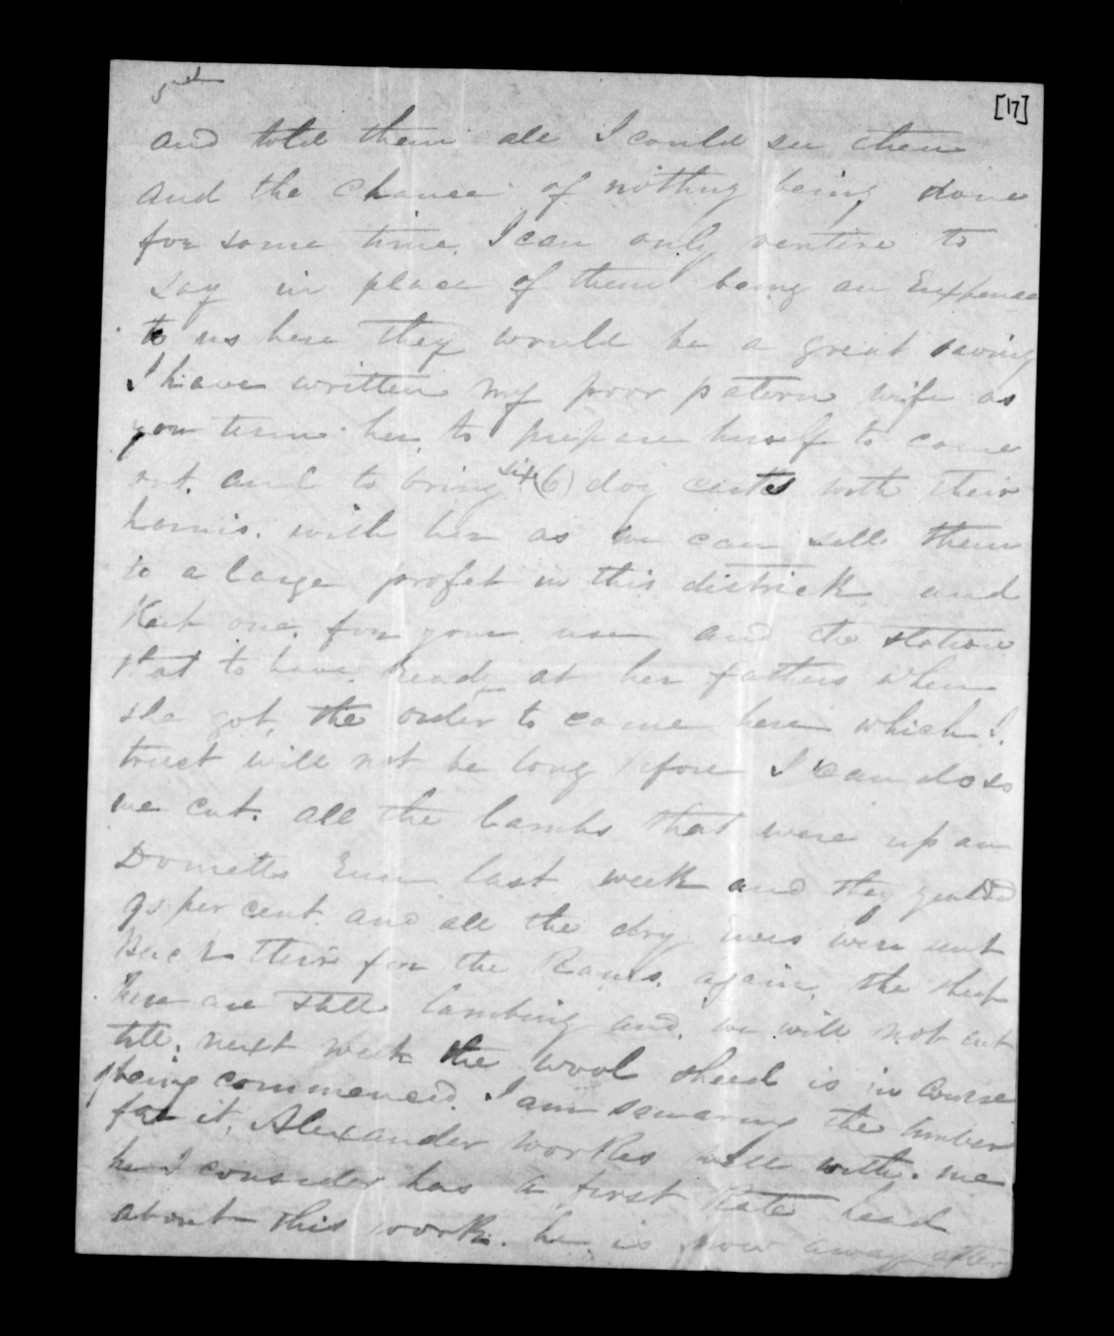 [17]
and told them all I could see them
and the chance of nothing being done
for some time. I can only venture to
say in place of them being an Expence
to us here they would be a great saving
I have written my poor patern wife as
you term her, to prepare herself to come
out. and to bring six (6) dog carts with their
harnis. with her as we can sell them
to a large profet in this districk and
Keep one. for your use and the station
that to have ready at her fathers when
she got, the order to come here which I.
trust will not be long before I can do so
we cut. all the lambs that were up an
Dometts Run last week and they yealded
95 per cent. and all the dry ewes were sent
Back their for the Rams. again. the sheep
here are still lambing and. we will not cut
till. next week the wool shed is in course
of being commenced. I am squaring the timber
for it, Alexander workes well with. me
he I consider has a first Rate head
about this work. he is now away after